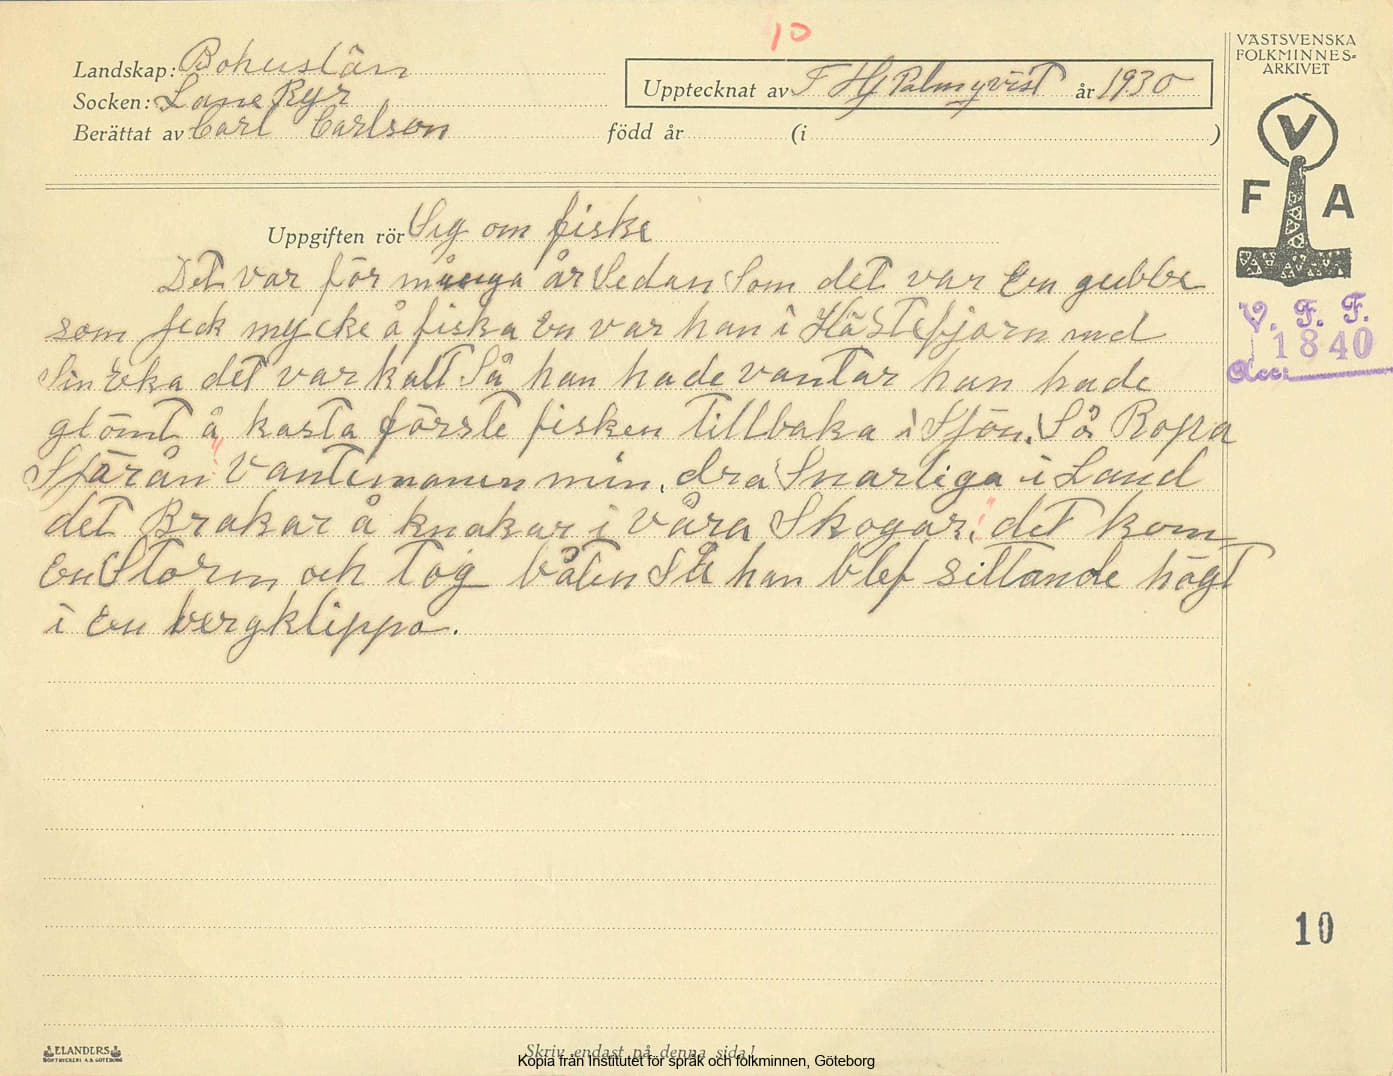 10
VÄSTSVENSKA
FOLKMINNES-
ARKIVET
Landskap: Bohuslän
Upptecknat av F Hj Palmqvist år 1930
Socken: Lane Ryr
Berättat av Carl Carlson född år (i )
V
F A
Uppgiften rör Sig om fiske
Det var för många år Sedan Som det var En gubbe
som feck mycke å fiska En var han i Hästefjorn med
Sin Eka det var kallt Så han hade vantar han hade
glömt å kasta förste fisken tillbaka i Sjön. Så Ropa
Sjärån "Vantemannen min, dra Snarliga i Land
det Brakar å knakar i våra Skogar." det kom
En Storm och tog båten Så han blef sittande högt
i En bergklippa.
V. F. F.
1840
Acc:
10
ELANDERS
BOKTRYCKERI A.B. GÖTEBORG
Skriv endast på denna sida!
Kopia från Institutet för språk och folkminnen, Göteborg